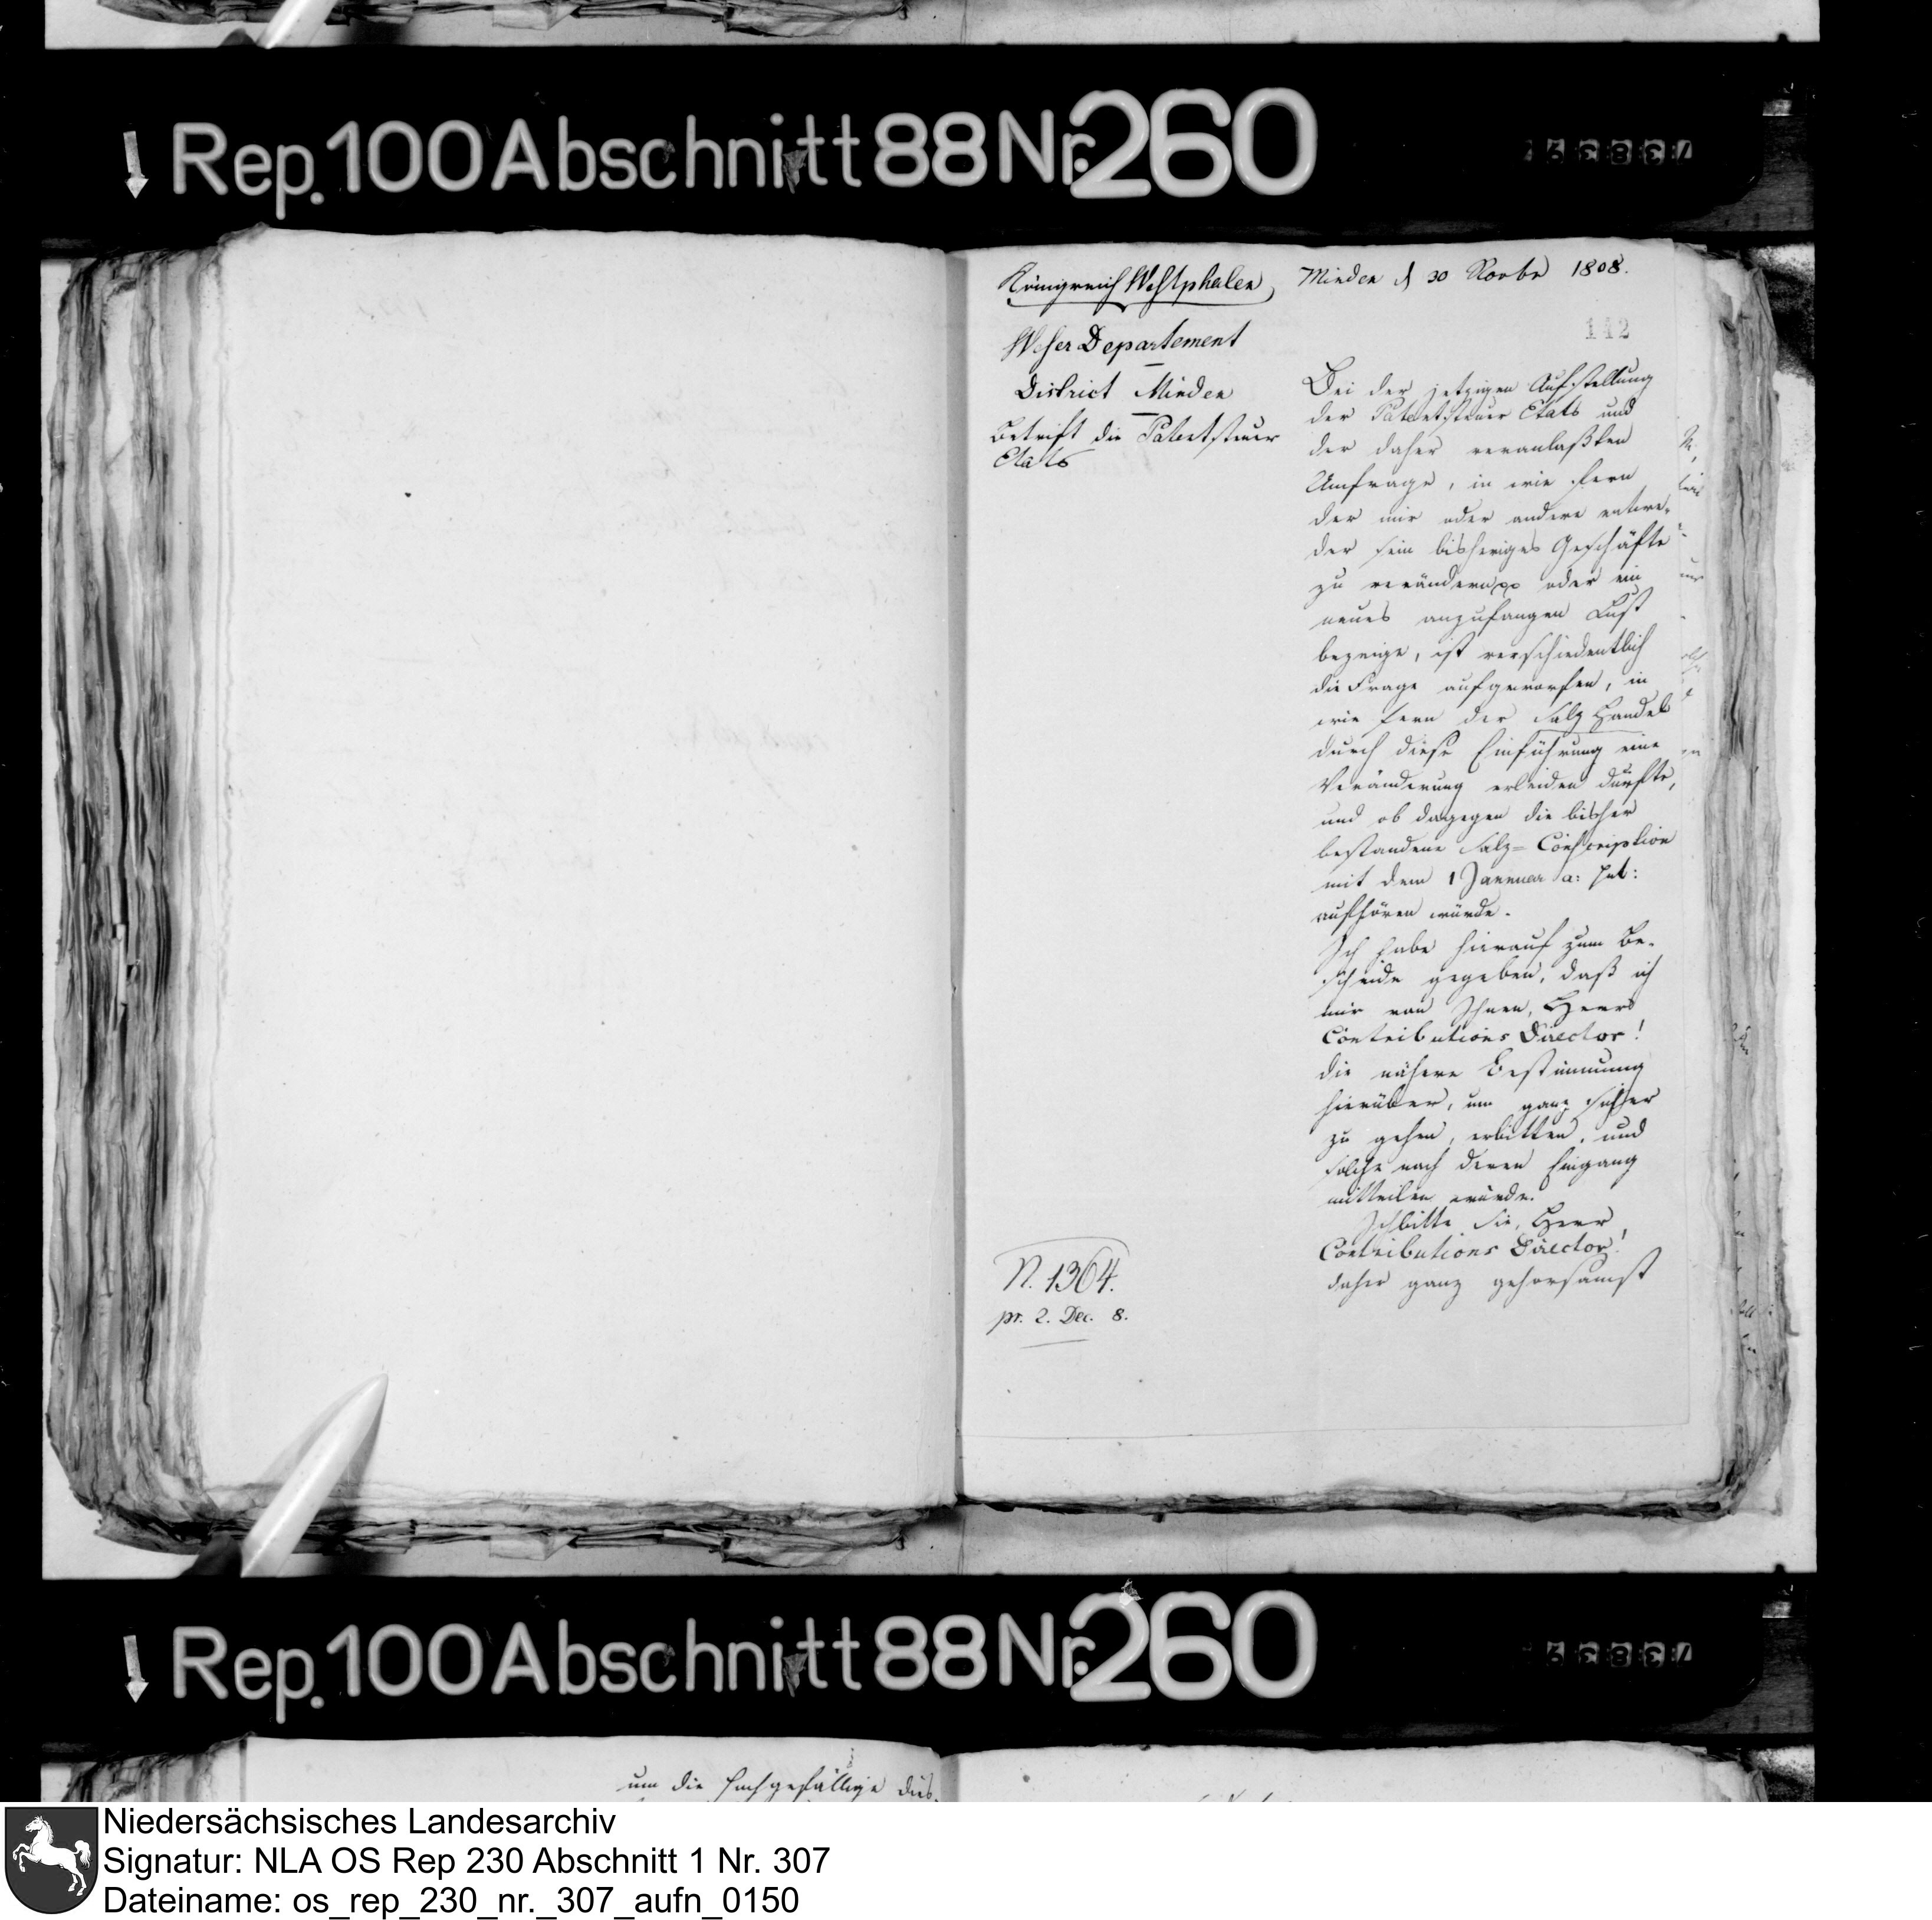 Rep. 100 Abschnitt 88 Nr. 260
Königreich Westphalen
Weser Departement
District Minden
Betrift die Patentsteuer
Etats
N. 1364.
pr. 2. Dec. 8.
Minden d 30 Novbr 1808.
142
Bei der jetzigen Aufstellung
der Patentsteuer Etats und
der daher veranlaßten
Umfrage, in wie fern
der ein oder andere entwe-
der sein bisheriges Geschäfte
zu verändern oder ein
neues anzufangen Lust
bezeige, ist verschiedentlich
die Frage aufgeworfen, in
wie fern der Salz Handel
durch diese Einführung eine
Veränderung erleiden dürfte,
und ob dagegen die bisher
bestandene Salz=Conscription
mit dem 1 Januar a: fut:
aufhören würde.
Ich habe hierauf zum Be-
scheide gegeben, daß ich
mir von Ihnen, Herr
Contributions Director!
die nähere Bestimmung
hierüber, um ganz sicher
zu gehen, erbitten, und
solche nach deren Eingang
mittheilen würde.
Ich bitte Sie, Herr
Contributions Director!
daher ganz gehorsamst
Rep. 100 Abschnitt 88 Nr. 260
um die hochgefällige
Niedersächsisches Landesarchiv
Signatur: NLA OS Rep 230 Abschnitt 1 Nr. 307
Dateiname: os_rep_230_nr._307_aufn_0150